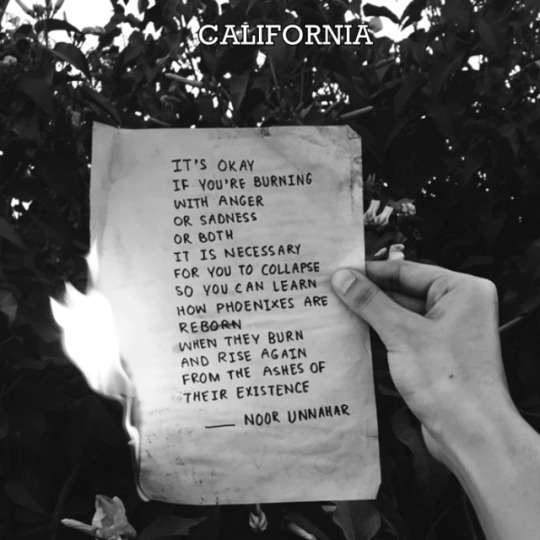 CALIFORNIA
IT'S OKAY
IF YOU'RE BURNING
WITH ANGER
OR SADNESS
OR BOTH
IT IS NECESSARY
FOR YOU TO COLLAPSE
SO YOU CAN LEARN
HOW PHOENIXES ARE
REBORN
WHEN THEY BURN
AND RISE AGAIN
FROM THE ASHES OF
THEIR EXISTENCE
___ NOOR UNNAHAR